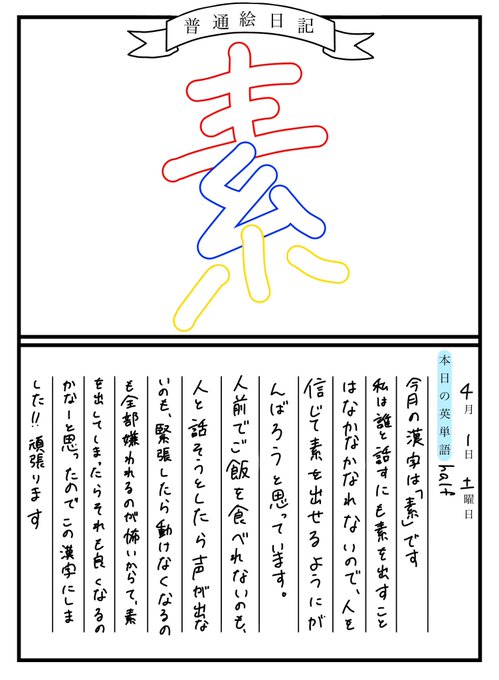 普通絵日記
素
4月1日土曜日
本日の英単語 half
今月の漢字は「素」です
私は誰と話すにも素を出すこと
はなかなかなれないので、人を
信じて素を出せるようにが
んばろうと思っています。
人前でご飯を食べれないのも、
人と話そうとしたら声が出な
いのも、緊張したら動けなくなるの
も全部嫌われるのが怖いからで、素
を出してしまったらそれも良くなるの
かなーと思ったのでこの漢字にしま
した!!頑張ります